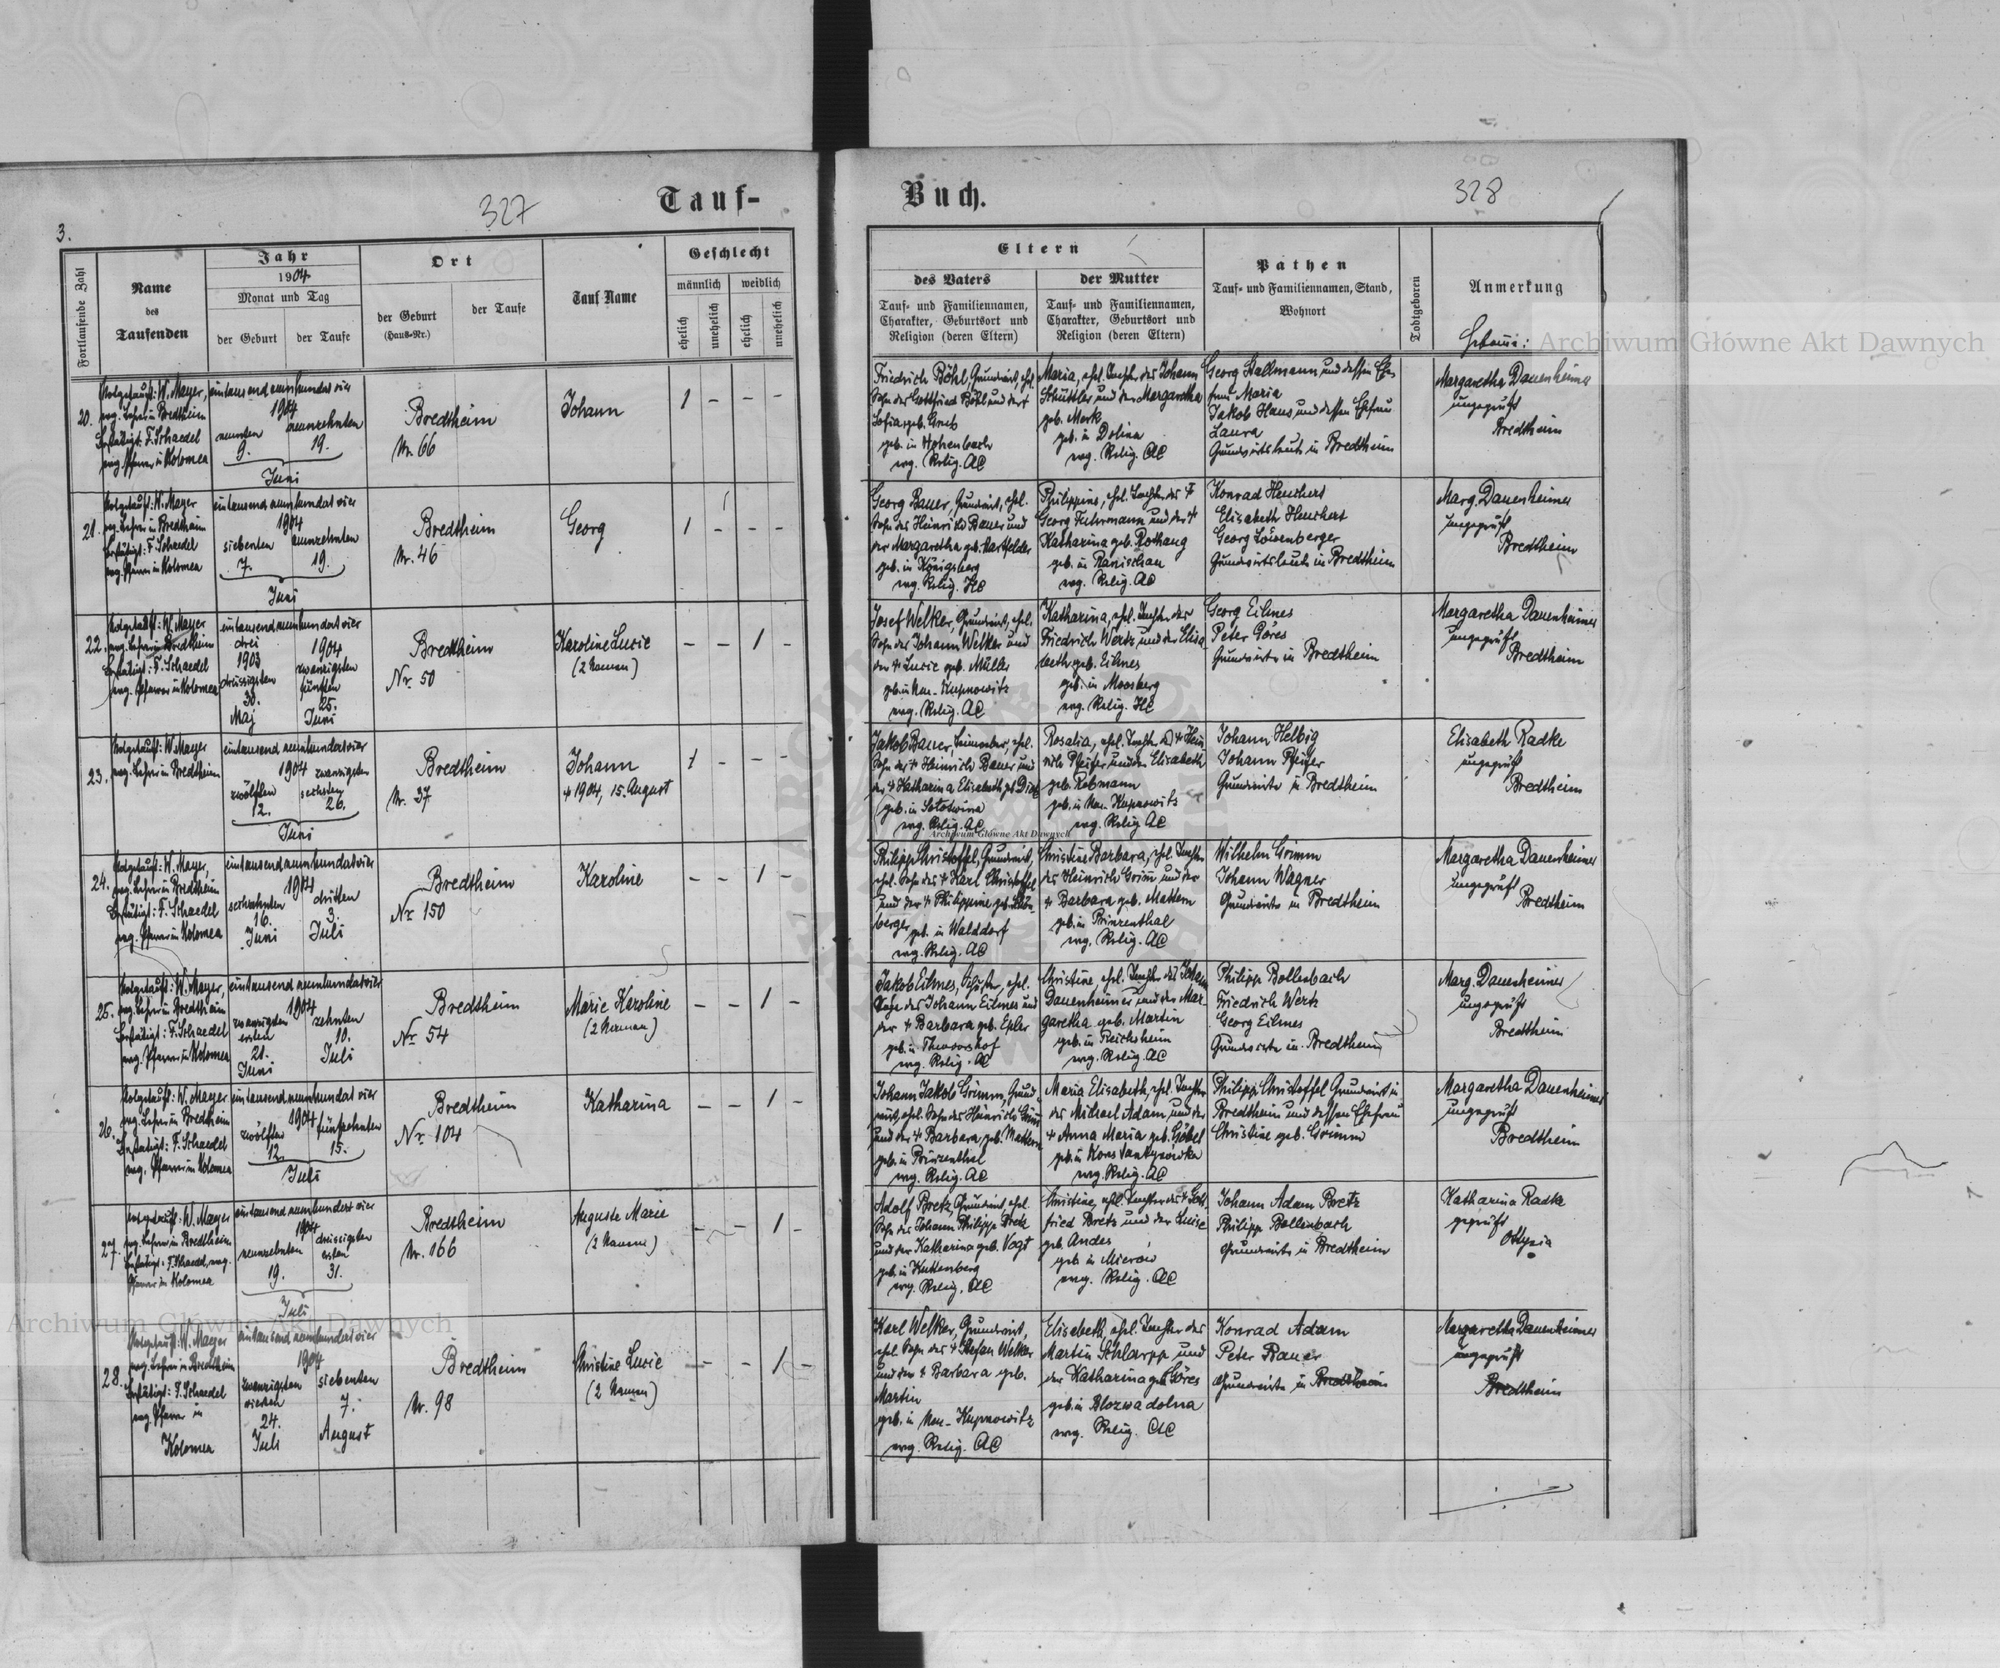 327
Tauf-
3.
Fortlaufende Zahl
Name
des
Taufenden
Jahr
1904
Monat und Tag
der Geburt
der Taufe
Ort
der Geburt
(Haus-Nr.)
der Taufe
Tauf Name
Geschlecht
männlich
weiblich
ehelich
unehelich
ehelich
unehelich
20.
Notgetauft: W. Mayer,
evg. Lehrer in Bredtheim
Bestätigt: F. Schaedel
evg. Pfarrer in Kolomea
eintausend neunhundert vier
1904
neunten
neunzehnten
9.
19.
Juni
Bredtheim
Nr. 66
Johann
1 - - -
21.
Notgetauft: W. Mayer
evg. Lehrer in Bredtheim
Bestätigt: F. Schaedel
evg. Pfarrer in Kolomea
eintausend neunhundert vier
1904
siebenten
neunzehnten
7.
19.
Juni
Bredtheim
Nr. 46
Georg
1 - - -
22.
Notgetauft: W. Mayer
evg. Lehrer in Bredtheim
Bestätigt: F. Schaedel
evg. Pfarrer in Kolomea
eintausend neunhundert vier
drei
1903
1904
dreissigsten
zwanzigsten
fünften
30.
25.
Maj
Juni
Bredtheim
Nr. 50
Karoline Lucie
(2 Namen)
- - 1 -
23.
Notgetauft: W. Mayer
evg. Lehrer in Bredtheim
eintausend neunhundert vier
1904
zwanzigsten
zwölften
sechsten
12.
26.
Juni
Bredtheim
Nr. 37
Johann
+ 1904, 15. August
1 - - -
24.
Notgetauft: W. Mayer,
evg. Lehrer in Bredtheim
Bestätigt: F. Schaedel
evg. Pfarrer in Kolomea
eintausend neunhundert vier
1904
sechzehnten
dritten
16.
3.
Juni
Juli
Bredtheim
Nr. 150
Karoline
- - 1 -
25.
Notgetauft: W. Mayer,
evg. Lehrer in Bredtheim
Bestätigt: F. Schaedel
evg. Pfarrer in Kolomea
eintausend neunhundert vier
1904
zwanzigsten
zehnten
ersten
21.
10.
Juni
Juli
Bredtheim
Nr. 54
Marie Karoline
(2 Namen)
- - 1 -
26.
Notgetauft: W. Mayer
evg. Lehrer in Bredtheim
Bestätigt: F. Schaedel
evg. Pfarrer in Kolomea
eintausend neunhundert vier
1904
zwölften
fünfzehnten
12.
15.
Juli
Bredtheim
Nr. 104
Katharina
- - 1 -
27.
Notgetauft: W. Mayer
evg. Lehrer in Bredtheim
Bestätigt: F. Schaedel, evg.
Pfarrer in Kolomea
eintausend neunhundert vier
1904
neunzehnten
dreissigsten
ersten
19.
31.
Juli
Bredtheim
Nr. 166
Auguste Marie
(2 Namen)
- - 1 -
28.
Notgetauft: W. Mayer
evg. Lehrer in Bredtheim
Bestätigt: F. Schaedel
evg. Pfarrer in
Kolomea
eintausend neunhundert vier
1904
zwanzigsten
siebenten
vierten
24.
7.
Juli
August
Bredtheim
Nr. 98
Christine Lucie
(2 Namen)
- - 1 -
Buch.
328
Eltern
des Vaters
der Mutter
Tauf- und Familiennamen,
Charakter, Geburtsort und
Religion (deren Eltern)
Tauf- und Familiennamen,
Charakter, Geburtsort und
Religion (deren Eltern)
Pathen
Tauf- und Familiennamen, Stand,
Wohnort
Todtgeboren
Anmerkung
Hebamme:
Friedrich Böhl, Grundwirt, ehel.
Sohn des Gottfried Böhl und der
Sofia geb.
geb. in Hohenbach
evg. Relig. AC
Maria, ehel. Tochter des Johann
Schüttler und der Margaretha
geb. Mork
geb. in Dolina
evg. Relig. AC
Georg Hallmann und dessen Ehe-
frau Maria
Jakob Haus und dessen Ehefrau
Laura
Grundwirtsleute in Bredtheim
Margaretha Dauenheimer
ungeprüft
Bredtheim
Georg Bauer, Grundwirt, ehel.
Sohn des Heinrich Bauer und
der Margaretha geb. Hartfelder
geb. in Königsberg
evg. Relig. HC
Philippine, ehel. Tochter des +
Georg Fuhrmann und der +
Katharina geb. Rothaug
geb. in Ranischau
evg. Relig. AC
Konrad Heuchert
Elisabeth Heuchert
Georg Löwenberger
Grundwirtsleute in Bredtheim
Marg. Dauenheimer
ungeprüft
Bredtheim
Josef Welker, Grundwirt, ehel.
Sohn des Johann Welker und
der + Lucie geb. Müller
geb. in Neu-Kupnowitz
evg. Relig. AC
Katharina, ehel. Tochter des
Friedrich Wertz und der Elisa-
beth geb. Eilmes
geb. in Moosberg
evg. Relig. HC
Georg Eilmes
Peter Göres
Grundwirte in Bredtheim
Margaretha Dauenheimer
ungeprüft
Bredtheim
Jakob Bauer, ehel.
Sohn des + Heinrich Bauer und
der + Katharina Elisabeth geb.
geb. in Solotwina
evg. Relig. AC
Rosalia, ehel. Tochter des + Hein-
rich Pfeifer und der Elisabeth
geb. Rebmann
geb. in Neu-Kupnowitz
evg. Relig. AC
Johann Helbig
Johann Pfeifer
Grundwirte in Bredtheim
Elisabeth Radke
ungeprüft
Bredtheim
Philipp Christoffel, Grundwirt,
ehel. Sohn des + Karl Christoffel
und der + Philippine geb. Löwen-
berger geb. in Walddorf
evg. Relig. AC
Christine Barbara, ehel. Tochter
des Heinrich Grimm und der
+ Barbara geb. Mattern
geb. in Prinzenthal
evg. Relig. AC
Wilhelm Grimm
Johann Wagner
Grundwirte in Bredtheim
Margaretha Dauenheimer
ungeprüft
Bredtheim
Jakob Eilmes, ehel.
Sohn des Johann Eilmes und
der + Barbara geb. Epler
geb. in Theodorshof
evg. Relig. AC
Christine, ehel. Tochter des Johann
Dauenheimer und der Mar-
garetha geb. Martin
geb. in Reichsheim
evg. Relig. AC
Philipp Bollenbach
Friedrich Wertz
Georg Eilmes
Grundwirte in Bredtheim
Marg. Dauenheimer
ungeprüft
Bredtheim
Johann Jakob Grimm, Grund-
wirt, ehel. Sohn des Heinrich Grimm
und der + Barbara, geb. Mattern
geb. in Prinzenthal
evg. Relig. AC
Maria Elisabeth, ehel. Tochter
des Michael Adam und der
+ Anna Maria geb. Göbel
geb. in
evg. Relig. AC
Philipp Christoffel Grundwirt in
Bredtheim und dessen Ehefrau
Christine geb. Grimm
Margaretha Dauenheimer
ungeprüft
Bredtheim
Adolf Bretz, Grundwirt, ehel.
Sohn des Johann Philipp Bretz
und der Katharina geb. Vogt
geb. in Kuttenberg
evg. Relig. AC
Christine, ehel. Tochter des + Gott-
fried Bretz und der Luise
geb. Andes
geb. in Mierow
evg. Relig. AC
Johann Adam Bretz
Philipp Bollenbach
Grundwirte in Bredtheim
Katharina Radke
geprüft
Ottynia
Karl Welker, Grundwirt,
ehel. Sohn des + Stefan Welker
und der + Barbara geb.
Martin
geb. in Neu-Kupnowitz
evg. Relig. AC
Elisabeth, ehel. Tochter des
Martin Schlarpp und
der Katharina geb. Göres
geb. in Blozwa dolna
evg. Relig. AC
Konrad Adam
Peter Bauer
Grundwirte in Bredtheim
Margaretha Dauenheimer
ungeprüft
Bredtheim
Archiwum Główne Akt Dawnych
Archiwum Główne Akt Dawnych
Archiwum Główne Akt Dawnych